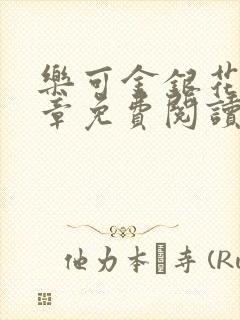 樂可金銀花
章免費閱讀
他力本�寺 (Ru